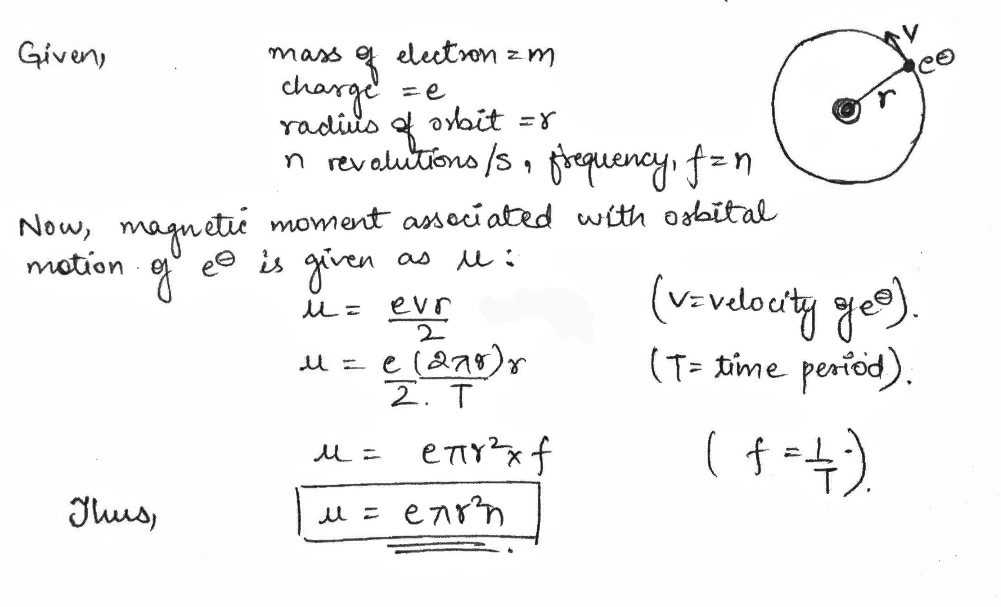 Given, mass of electron = m
charge = e
radius of orbit = r
n revolutions/s, frequency, f = n
V
e⊖
r
Now, magnetic moment associated with orbital
motion of e⊖ is given as μ :
μ = evr/2 (V = velocity of e⊖).
μ = e (2πr)r / 2. T (T = time period).
μ = eπr² x f ( f = 1/T ).
Thus, μ = eπr²n.